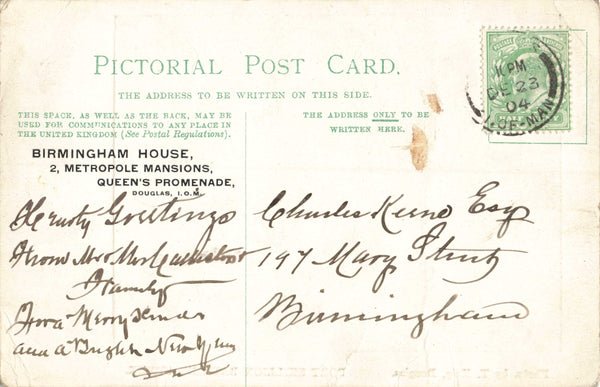 PICTORIAL POST CARD.
THE ADDRESS TO BE WRITTEN ON THIS SIDE.
THIS SPACE, AS WELL AS THE BACK, MAY BE
USED FOR COMMUNICATIONS TO ANY PLACE IN
THE UNITED KINGDOM (See Postal Regulations).
THE ADDRESS ONLY TO BE
WRITTEN HERE.
BIRMINGHAM HOUSE,
2, METROPOLE MANSIONS,
QUEEN'S PROMENADE,
DOUGLAS, I.O.M.
Hearty Greetings
From Mr & Mrs
Family
For a Merry Xmas
and a Bright New Year
Charles Keene Esq
197 Mary Street
Birmingham
PM
DE 23
04
OF MAN
HALF